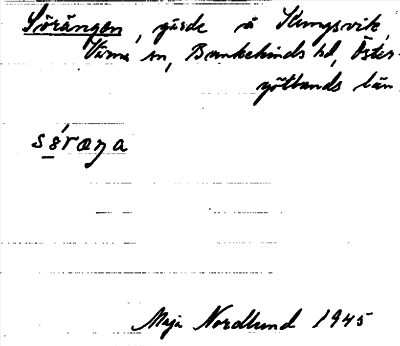 Sörängen, gärde å Slungsvik,
Värna sn, Bankekinds hd, Öster-
götlands län.
sǿ̠ræŋa
Maja Nordlund 1945